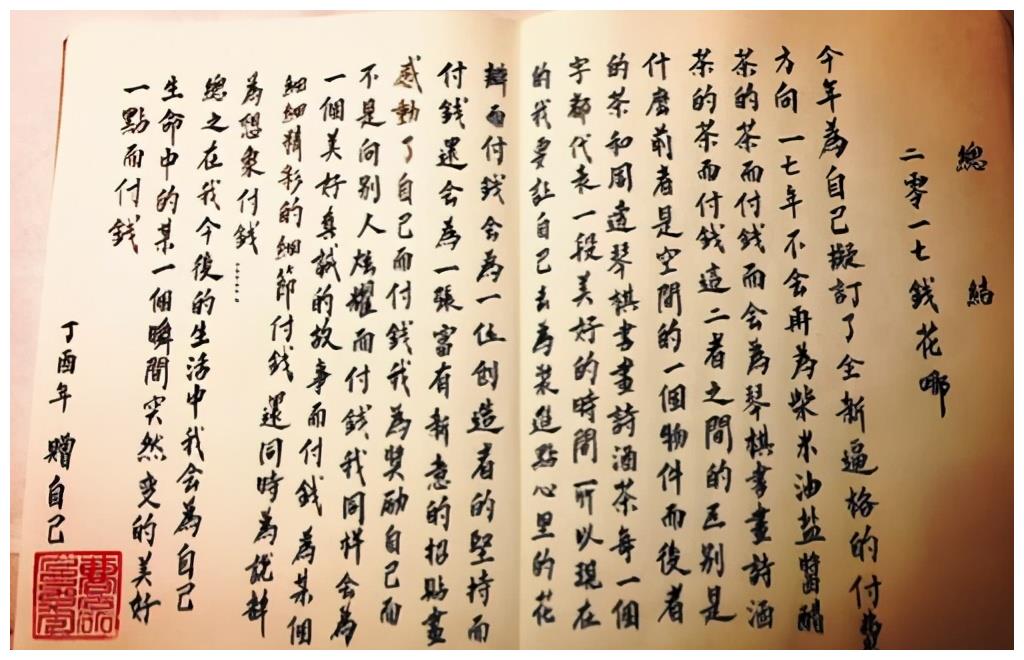 總結
二零一七錢花哪
今年為自己擬訂了全新逼格的付費
方向一七年不会再為柴米油盐醬醋
茶的茶而付錢而会為琴棋書畫詩酒
茶的茶而付錢這二者之間的区别是
什麼前者是空間的一個物件而後者
的茶和周邊琴棋书畫詩酒茶每一個
字都代表一段美好的時間所以現在
的我要让自己去為装進點心里的花
辯而付钱会為一位創造者的堅持而
付錢還会為一張富有新意的招贴畫
感動了自己而付錢我為奬励自己而
不是向别人炫耀而付錢我同样会為
一個美好真誠的故事而付钱為某個
細細精彩的細節付钱還同時為說辞
為想象付钱……
總之在我今後的生活中我会為自己
生命中的某一個瞬間突然变的美好
一點而付錢
丁酉年 贈自己